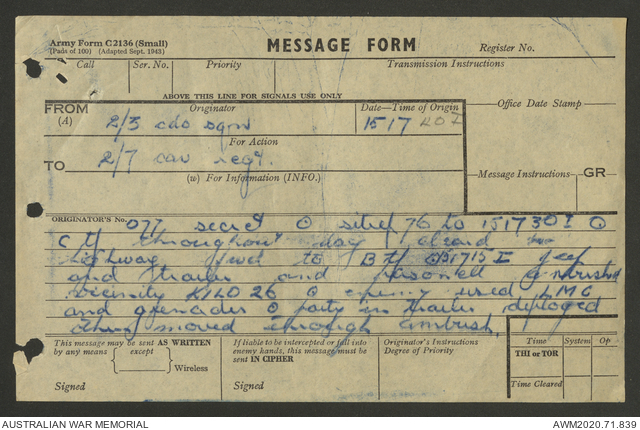 Army Form C2136 (Small)
(Pads of 100) (Adapted Sept. 1943)
MESSAGE FORM
Register No.
Call Ser. No. Priority Transmission Instructions
ABOVE THIS LINE FOR SIGNALS USE ONLY
FROM
(A)
Originator
2/3 cdo sqn
Date—Time of Origin
1517
Office Date Stamp
For Action
TO
2/7 cav regt.
(w) For Information (INFO.)
Message Instructions GR
ORIGINATOR'S No. 077 secret O sitrep 76 to 151730 I O
throughout day
highway fwd to 151715 I jeep
and trailer and ambushed
vicinity KILO 26 O enemy used LMG
and grenades O party in trailer deployed
moved through ambush.
This message may be sent AS WRITTEN
by any means except
Wireless
Signed
If liable to be intercepted or fall into
enemy hands, this message must be
sent IN CIPHER
Signed
Originator's Instructions
Degree of Priority
Time System Op
THI or TOR
Time Cleared
AUSTRALIAN WAR MEMORIAL
AWM2020.71.839